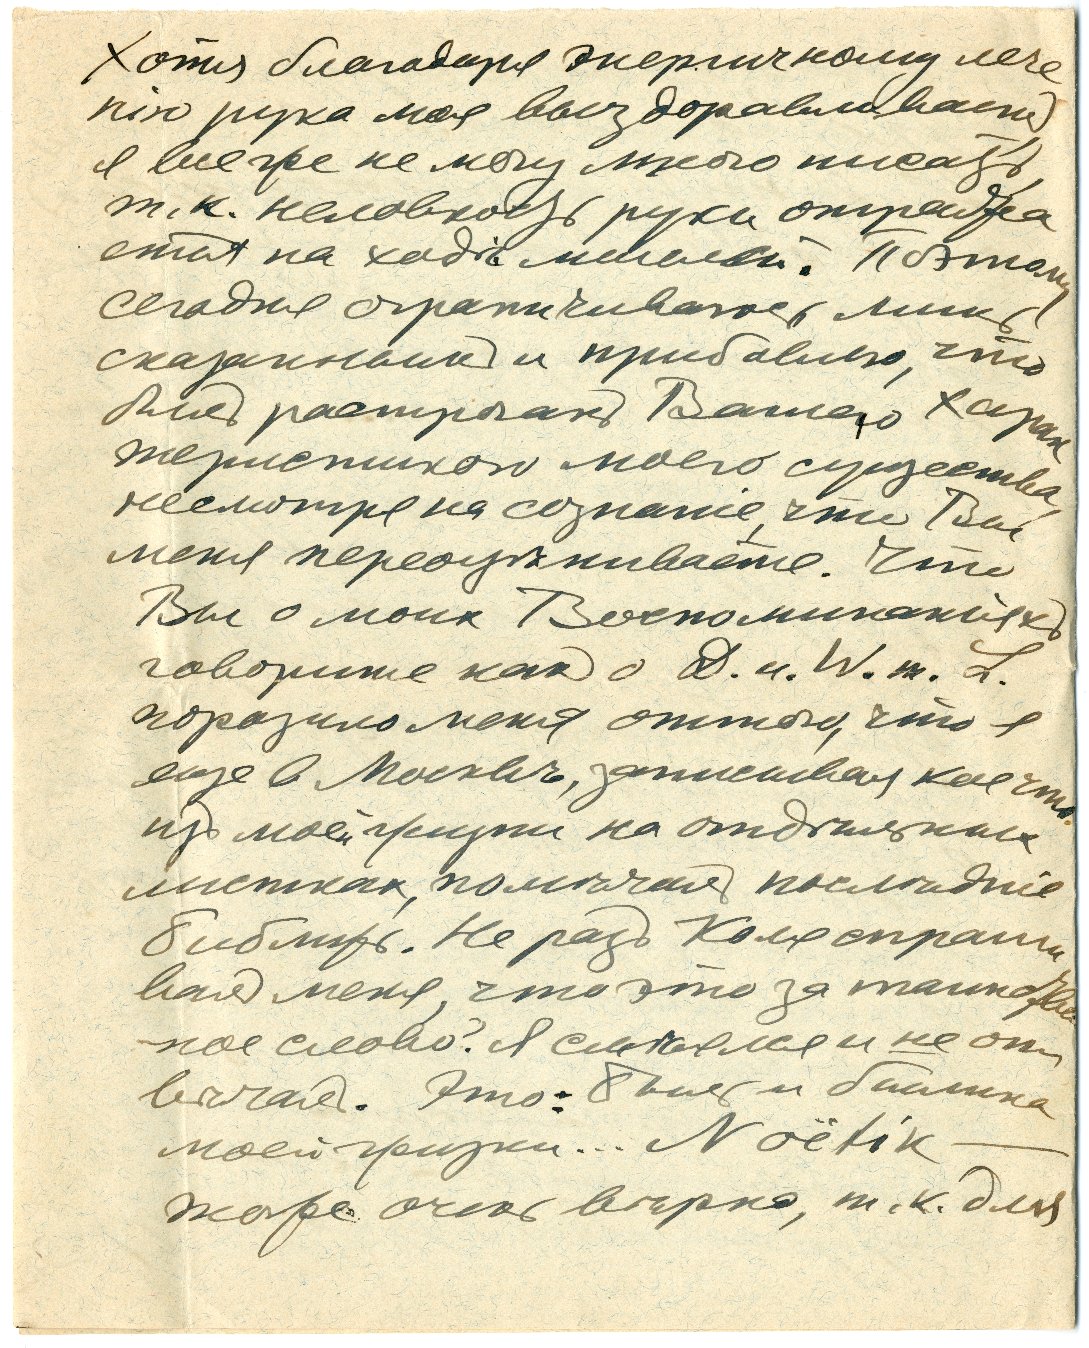 Хотя благодаря энергичному лече
нію рука моя выздоравливаетъ
я все же не могу много писать,
т.к. неловкость руки отража
ется на ходѣ мыслей. Поэтому
сегодня ограничиваюсь лишь
сказаннымъ и прибавлю, что
былъ растроганъ Вашею харак
теристикою моего существа,
несмотря на сознаніе, что Вы
меня переоцѣниваете. Что
Вы о моихъ Воспоминаніяхъ
говорите какъ о D. u. W. m. L.
поразило меня оттого, что я
еще в Москвѣ, записывая кое что
изъ моей жизни на отдѣльных
листках, помѣчалъ послѣдніе
Бибмуь. Не разъ Коля спраши
валъ меня, что это за таинствен
ное слово? Я смѣялся и не от
вѣчалъ. Это: Быль и былина
моей жизни... Noëtik —
тоже очень вѣрно, т.к. для